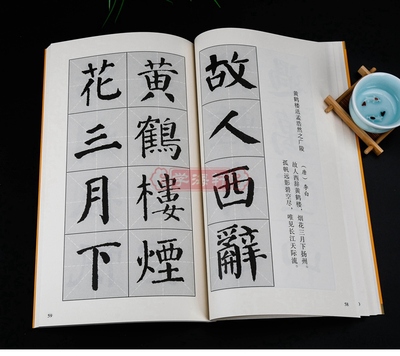 黄鹤楼送孟浩然之广陵
（唐）李白
故人西辞黄鹤楼，烟花三月下扬州。
孤帆远影碧空尽，唯见长江天际流。
故人西辭
黄鶴樓煙
花三月下
58
59